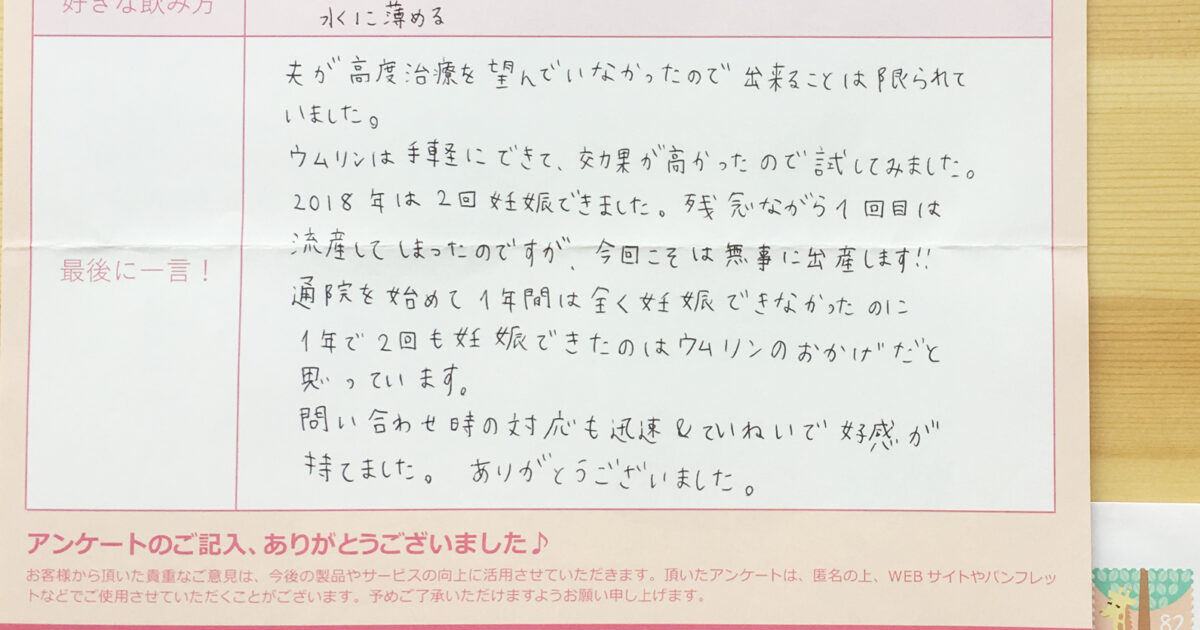 好きな飲み方
水に薄める
夫が高度治療を望んでいなかったので出来ることは限られて
いました。
ウムリンは手軽にできて、効果が高かったので試してみました。
2018年は2回妊娠できました。残念ながら1回目は
流産してしまったのですが、今回こそは無事に出産します!!
最後に一言！
通院を始めて1年間は全く妊娠できなかったのに
1年で2回も妊娠できたのはウムリンのおかげだと
思っています。
問い合わせ時の対応も迅速&ていねいで好感が
持てました。ありがとうございました。
アンケートのご記入、ありがとうございました♪
お客様から頂いた貴重なご意見は、今後の製品やサービスの向上に活用させていただきます。頂いたアンケートは、匿名の上、WEBサイトやパンフレッ
トなどでご使用させていただくことがございます。予めご了承いただけますようお願い申し上げます。
82